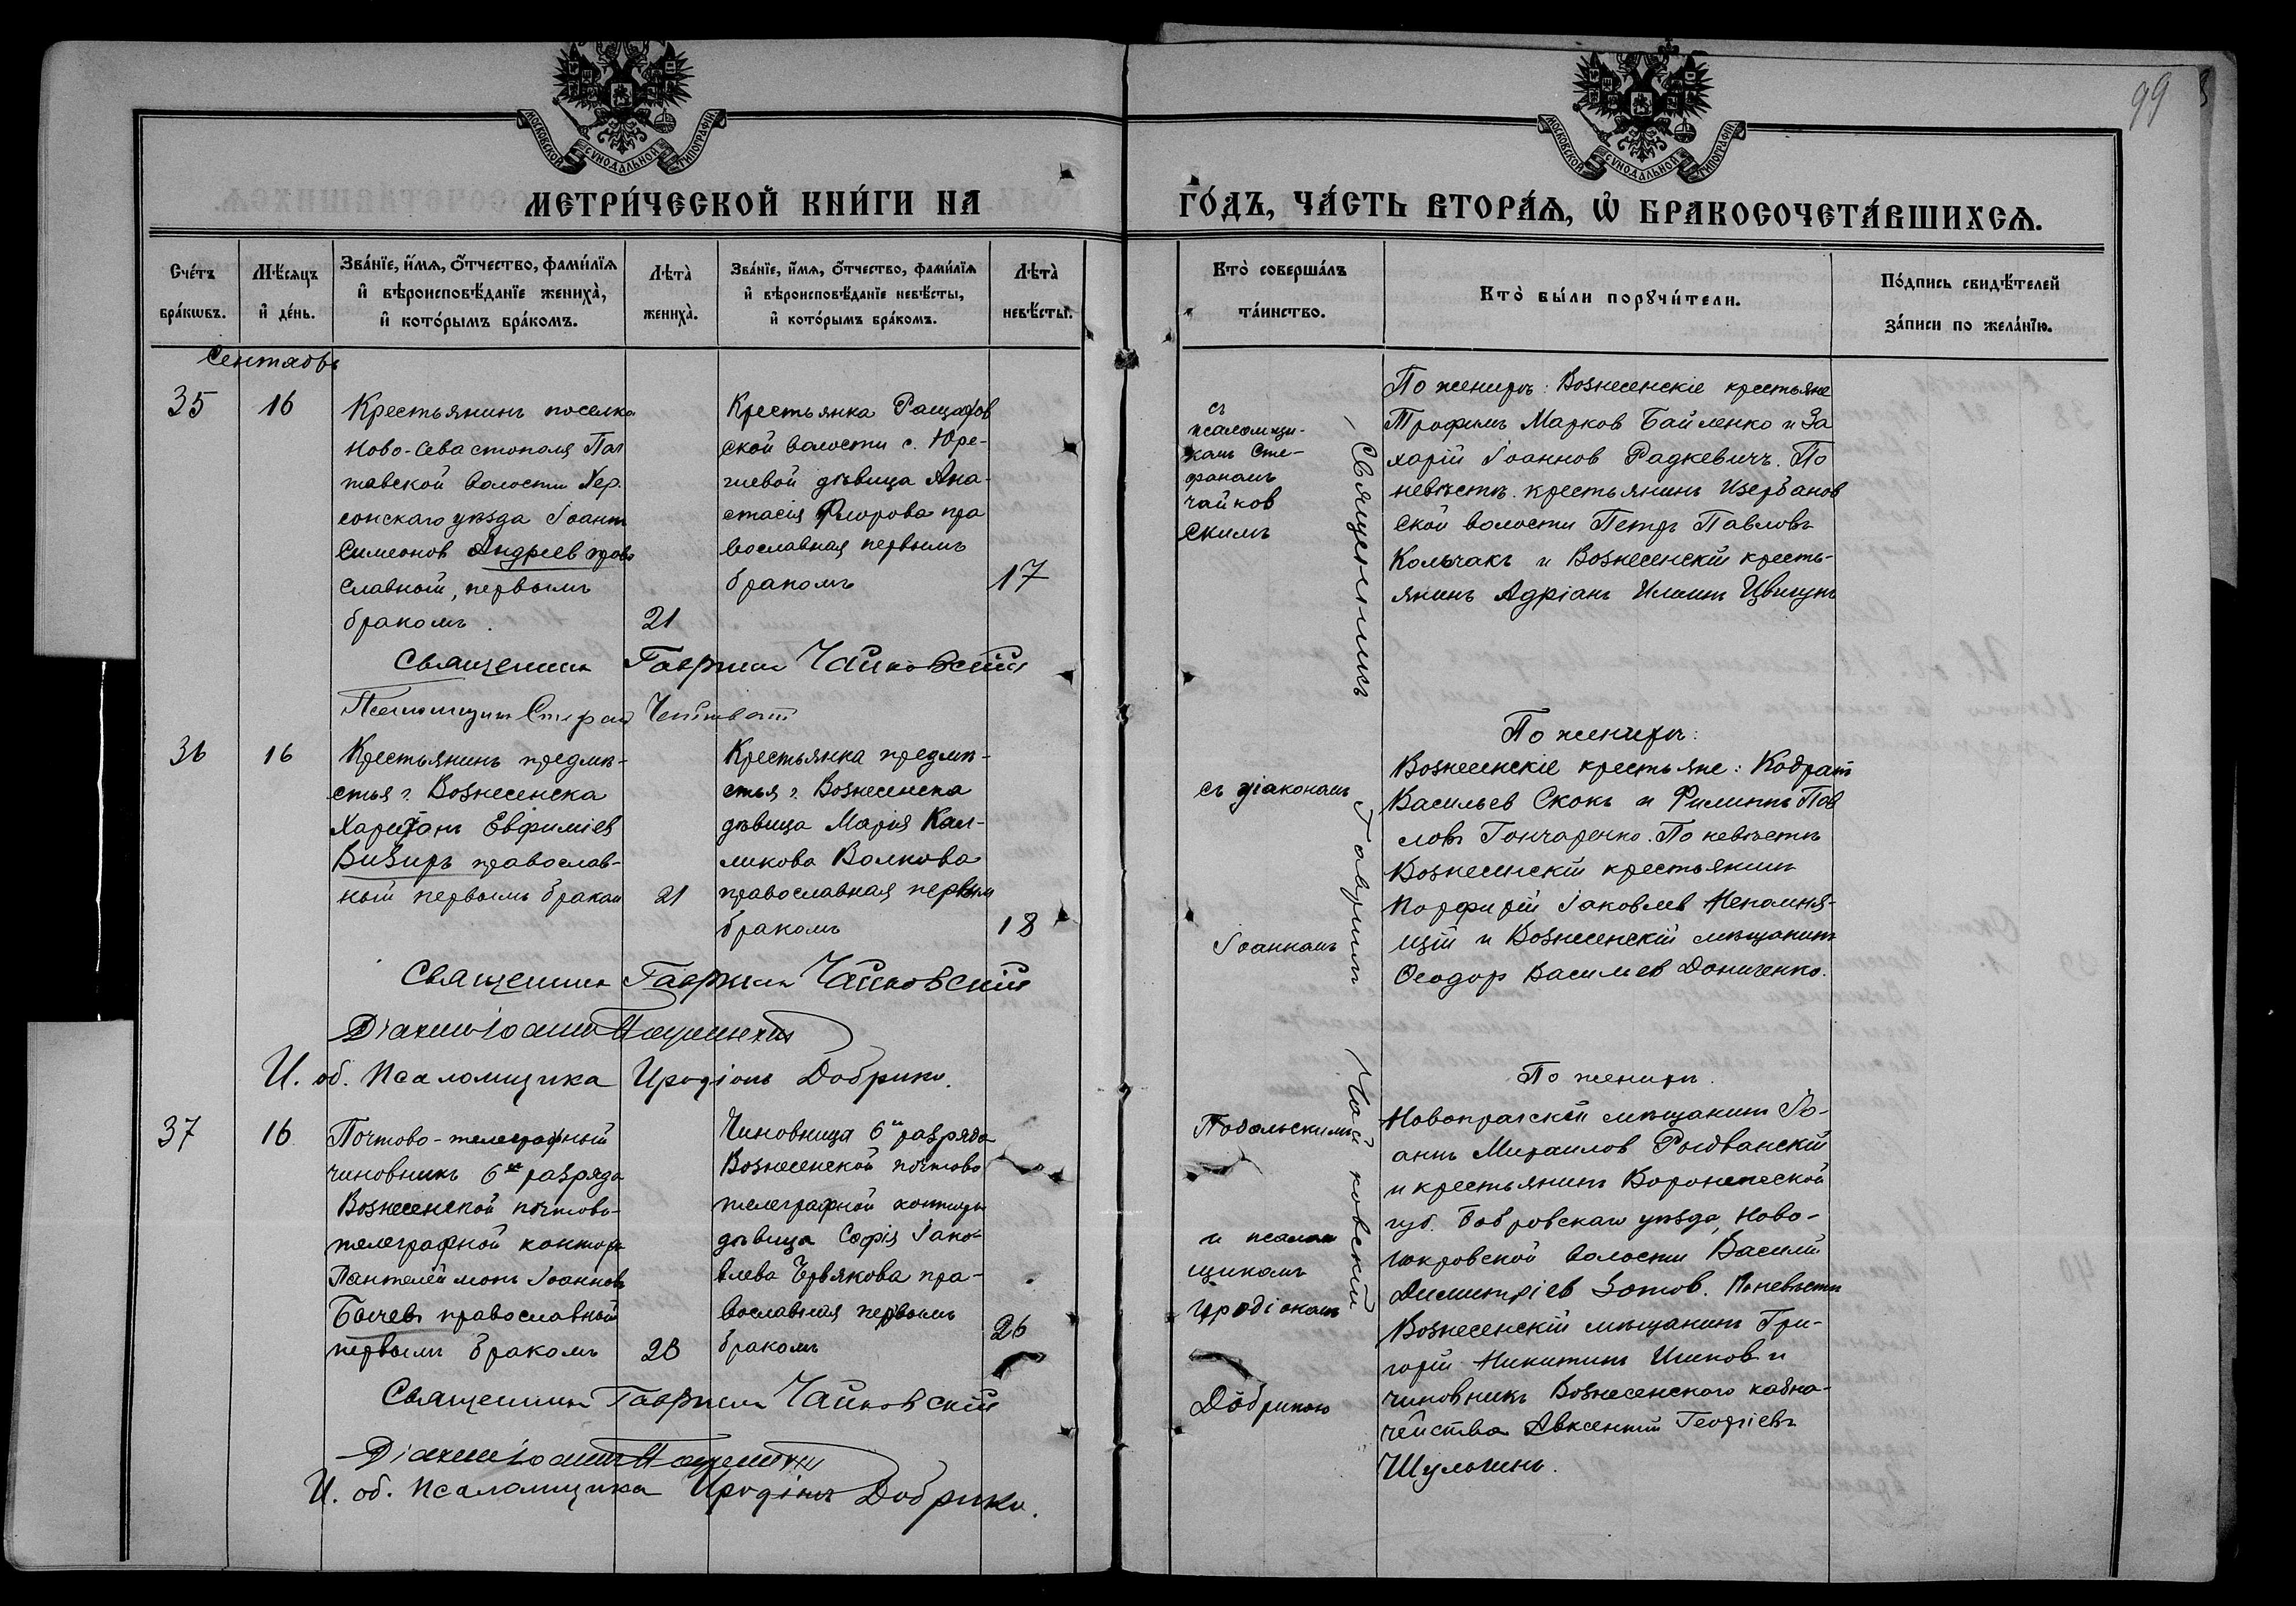 99
МОСКОВСКОЙ СѴНОДАЛЬНОЙ ТИПОГРАФІИ
МОСКОВСКОЙ СѴНОДАЛЬНОЙ ТИПОГРАФІИ
МЕТРИ́ЧЕСКОЙ КНИ́ГИ НА
ГО́ДЪ, ЧА́СТЬ ВТОРА́Ѧ, Ѽ БРАКОСОЧЕТА́ВШИХСѦ.
Сче́тъ бра́кѡвъ.
Мѣ́сяцъ и҆ де́нь.
Зва́нїе, и҆́мѧ, ѻ҆́тчество, фами́лїѧ и҆ вѣроисповѣ́данїе жениха̀, и҆ кото́рымъ бра́комъ.
Лѣта̀ жениха̀.
Зва́нїе, и҆́мѧ, ѻ҆́тчество, фами́лїѧ и҆ вѣроисповѣ́данїе невѣ́сты, и҆ кото́рымъ бра́комъ.
Лѣта̀ невѣ́сты.
Кто̀ соверша́лъ та́инство.
Кто̀ бы́ли порꙋчи́тели.
По́дпись свидѣ́телей за́писи по жела́нїю.
Сентябрь
35
16
Крестьянинъ поселка
Ново-Севастополя Пол
тавской волости Хер
сонскаго уѣзда Іоанн
Симеонов Андреев право
славный, первымъ
бракомъ.
21
Крестьянка
ской волости с. Юре-
гневой дѣвица Ана-
стасія Флорова пра
вославная первымъ
бракомъ
17
съ
псаломщи-
комъ Сте-
фаномъ
Чайков
скимъ
По женихѣ: Вознесенскіе крестьяне
Трофимъ Марков Байленко и За
харій Іоаннов Радкевичъ. По
невѣстѣ. крестьянинъ Щербанов
ской волости Петръ Павловъ
Кольчакъ и Вознесенскій кресть-
янинъ Адріанъ Цвигунъ
Священникъ Гавриилъ Чайковскій
Псаломщик Стефан
36
16
Крестьянинъ предмѣ-
стья г. Вознесенска
Харитонъ Евфиміев
Визиръ православ-
ный первымъ браком
21
Крестьянка предмѣ-
стья г. Вознесенска
дѣвица Марія Кал-
ликова Волкова
православная первым
бракомъ
18
съ діакономъ
Іоанномъ
По женихѣ:
Вознесенскіе крестьяне: Кодратъ
Васильев Скокъ и Филиппъ Пав
ловъ Гончаренко. По невѣстѣ
Вознесенскій крестьянинъ
Порфирій Іаковлев Непомня-
щій и Вознесенскій мѣщанинъ
Ѳеодор Васильев Дониченко.
Священникъ Гавриилъ Чайковскій
Діаконъ Іоаннъ
И. об. Псаломщика Иродіонъ Добрико.
37
16
Почтово-телеграфный
чиновникъ 6го разряда
Вознесенской почтово-
телеграфной конторы
Пантелеймонъ Іоанновъ
Бычевъ православный
первымъ бракомъ
28
Чиновница 6го разряда
Вознесенской почтово
телеграфной конторы
дѣвица Софія Іако-
влева Червякова пра-
вославная первымъ
бракомъ
26
Подольскимъ
и псалом
щикомъ
Иродіономъ
Добрикою
Священникъ Гавриилъ Чайковскій
По женихѣ.
Новопражскій мѣщанинъ Іо-
аннъ Михаилов Рыдванскій
и крестьянинъ Воронежской
губ. Бобровскаго уѣзда, Ново-
покровской волости Василій
Димитріев Зотов. По невѣстѣ
Вознесенскій мѣщанинъ Гри-
горій Никитинъ и
чиновникъ Вознесенского казна-
чейства Авксентій Георгіевъ
Шульгинъ.
Священникъ Гавриилъ Чайковскій
Діаконъ Іоаннъ
И. об. Псаломщика Иродіонъ Добрико.